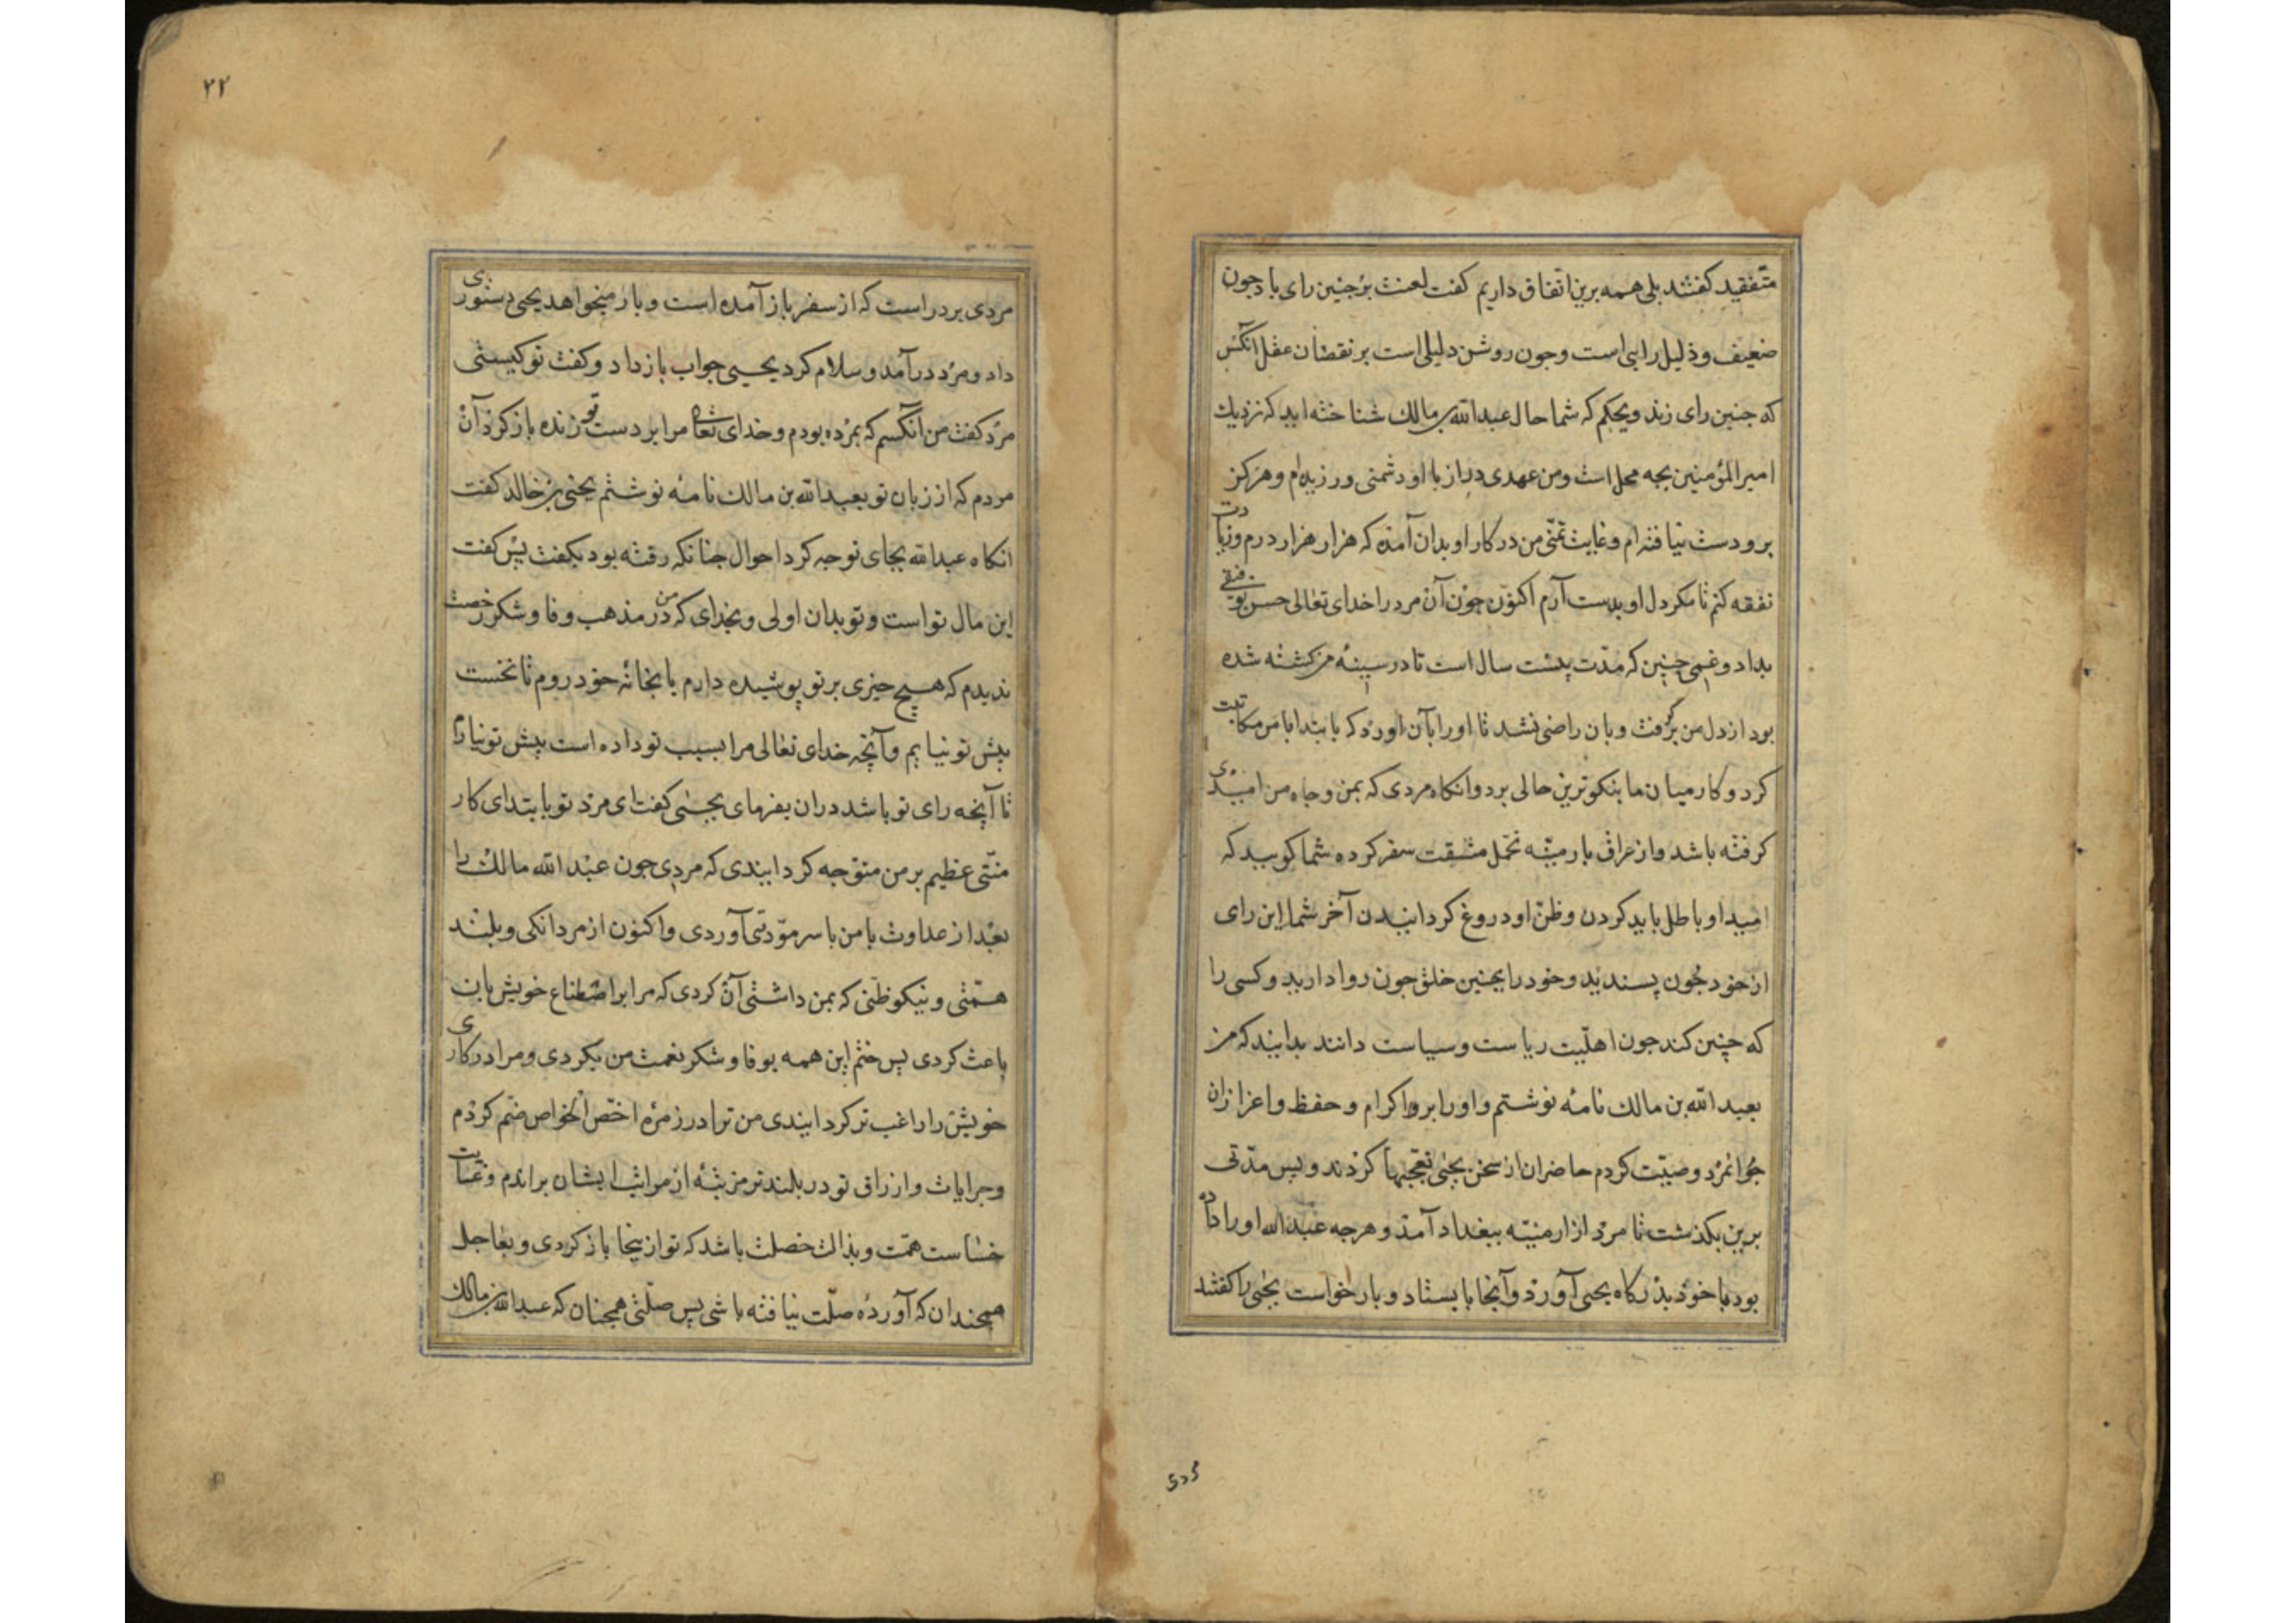 متفقید گفتند بلی همه برین اتفاق داریم کفت لعنت بر جنین رای باد جون
ضعیف و ذلیل رایی است و جون روشن دلیلی است بر نقصان عقل آنکس
که جنین رای زند ویحکم که شما حال عبدالله بن مالک شناخته اید که نزدیک
امیر المؤمنین بجه محل است و من عهدی دراز با او دشمنی ورزیده‌ام و هرکز
برو دست نیافته ام و غایت تمنّی من در کار او بدان آمده که هزار هزار درم و زیادت
نفقه کنم تا مکر دل او بدست آرم اکنون جون آن مرد را خدای تعالی حسن توفیقی
بداد و غمی چنین که مدّت بیست سال است تا در سینهٔ من کشته شده
بود از دل من بر کرفت و بان راضی نشد تا او را بآن اورد که بابتدا با من مکاتبت
کرد و کار میان ما بنیکوترین حالی برد وانکاه مردی که بمن و جاه من امیدی
کرفته باشد و از عراق بارمینیه تحمّل مشقت سفر کرده شما کویید که
امید او باطل باید کردن و ظن او دروغ کردانیدن آخر شما این رای
از خود جون پسندید و خود را بجنین خلق جون روا دارید و کسی را
که چنین کند جون اهلیّت ریاست و سیاست دانند بدانید که من
بعبد الله بن مالک نامهٔ نوشتم و او را بر و اکرام و حفظ و اعزاز ان
جوانمرد وصیّت کردم حاضران از سخن یحیی تعجبها کردند و پس مدّتی
برین بکذشت تا مرد از ارمنیّه ببغداد آمد و هرجه عبدالله او را داده
بود با خود بدرکاه یحیی آورد و آنجا بایستاد و بار خواست یحیی را کفتند
۲۲
مردی بر در است که از سفر باز آمده است و بار میخواهد یحیی دستوری
داد و مرد درآمد و سلام کرد یحیی جواب باز داد و کفت تو کیستی
مرد کفت من آنکسم که بمرده بودم و خدای تعالی مرا بر دست تو زنده باز کرد آن
مردم که از زبان تو بعبد الله بن مالک نامهٔ نوشتم یحیی بن خالد کفت
انکاه عبد الله بجای تو جه کرد احوال جنانکه رفته بود بکفت پس کفت
این مال تو است و تو بدان اولی و بخدای که من در مذهب وفا و شکر رخصت
ندیدم که هیچ جیزی بر تو پوشیده دارم یا بخانهٔ خود روم تا نخست
پیش تو نیایم و آنچه خدای تعالی مرا بسبب تو داده است پیش تو نیارم
تا آنچه رای تو باشد دران بفرمای یحیی کفت ای مرد تو بابتدای کار
منّتی عظیم بر من متوّجه کردانیدی که مردی جون عبد الله مالک را
بعد از عداوت با من با سر مودّتی آوردی و اکنون از مردانکی و بلند
همّتی و نیکو ظنّی که بمن داشتی آن کردی که مرا بر اصطناع خویش بان
باعث کردی پس ختم این همه بوفا و شکر نعمت من بکردی و مرا در کاری
خویش را راغب تر کردانیدی من ترا در زمرهٔ اخصّ الخواص ضم کردم
و جرایات و ارزاق تو در بلندتر مرتبهٔ از مراتب ایشان براندم و غایت
خساست همّت و بذالت خصلت باشد که تو از ینجا باز کردی و بعاجل
همجندان که آوردهٔ صلّت نیافته باشی پس صلّتی همجنان که عبدالله بن مالک